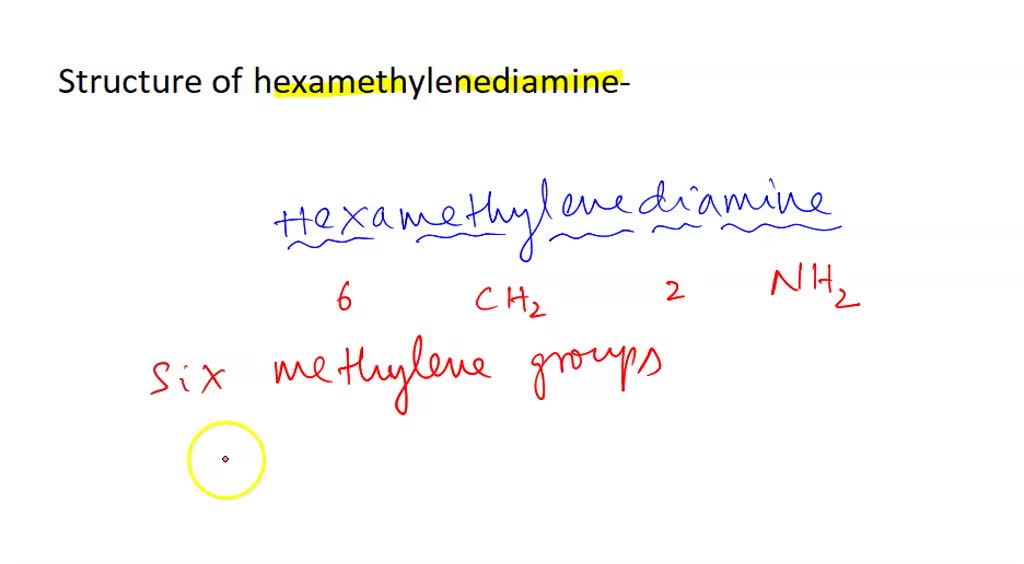 Structure of hexamethylenediamine-
Hexamethylenediamine
6 CH2 2 NH2
Six methylene groups